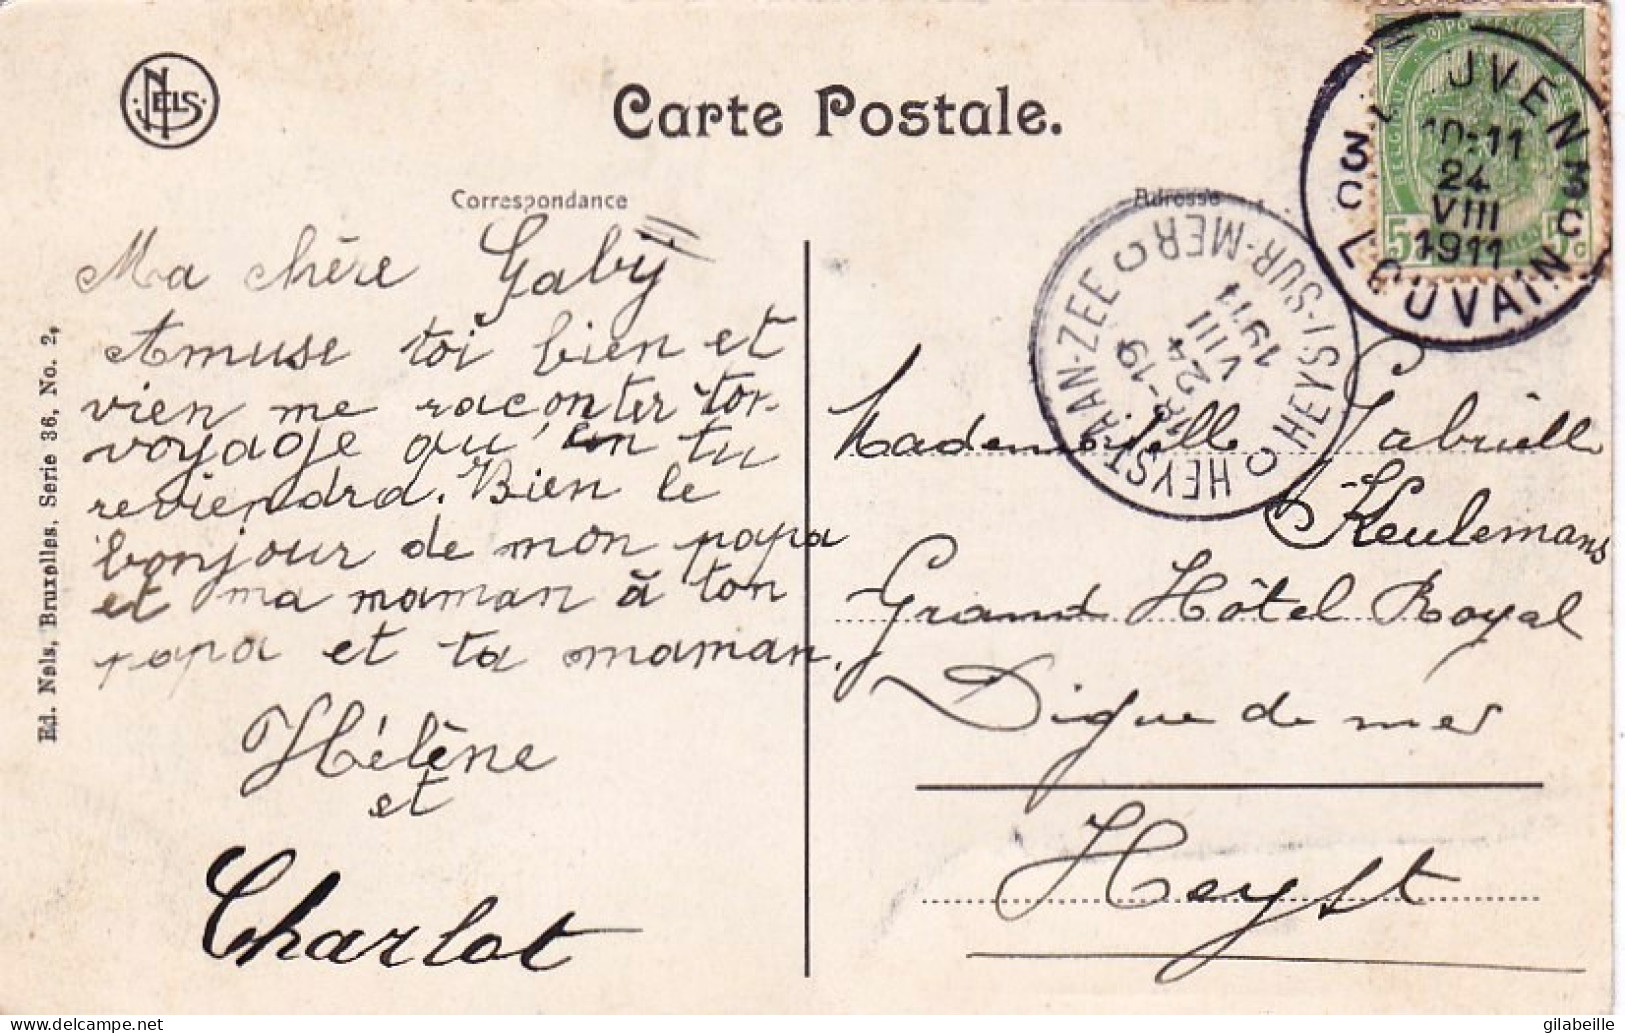 NELS
Carte Postale.
Correspondance
Adresse
Ma chère Gaby
Amuse toi bien et
vien me raconter ton
voyage qu'en tu
reviendra. Bien le
bonjour de mon papa
et ma maman à ton
papa et ta maman.
Hélène
et
Charlot
Ed. Nels, Bruxelles, Serie 36, No. 2,
Mademoiselle Gabrielle
Keulemans
Grand Hôtel Royal
Digue de mer
Heyst
HEYST-AAN-ZEE
HEYST-SUR-MER
18-19
24
VIII
1911
LEUVEN
3C 3C
10-11
24
VIII
1911
LOUVAIN
POSTES
BELGIQUE
5c 5c
delcampe.net
gilabeille